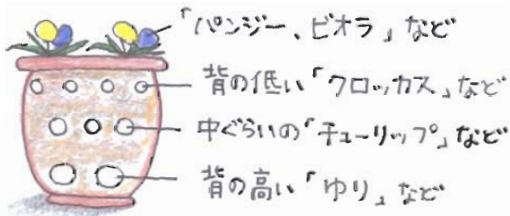 「パンジー、ビオラ」など
背の低い「クロッカス」など
中ぐらいの「チューリップ」など
背の高い「ゆり」など